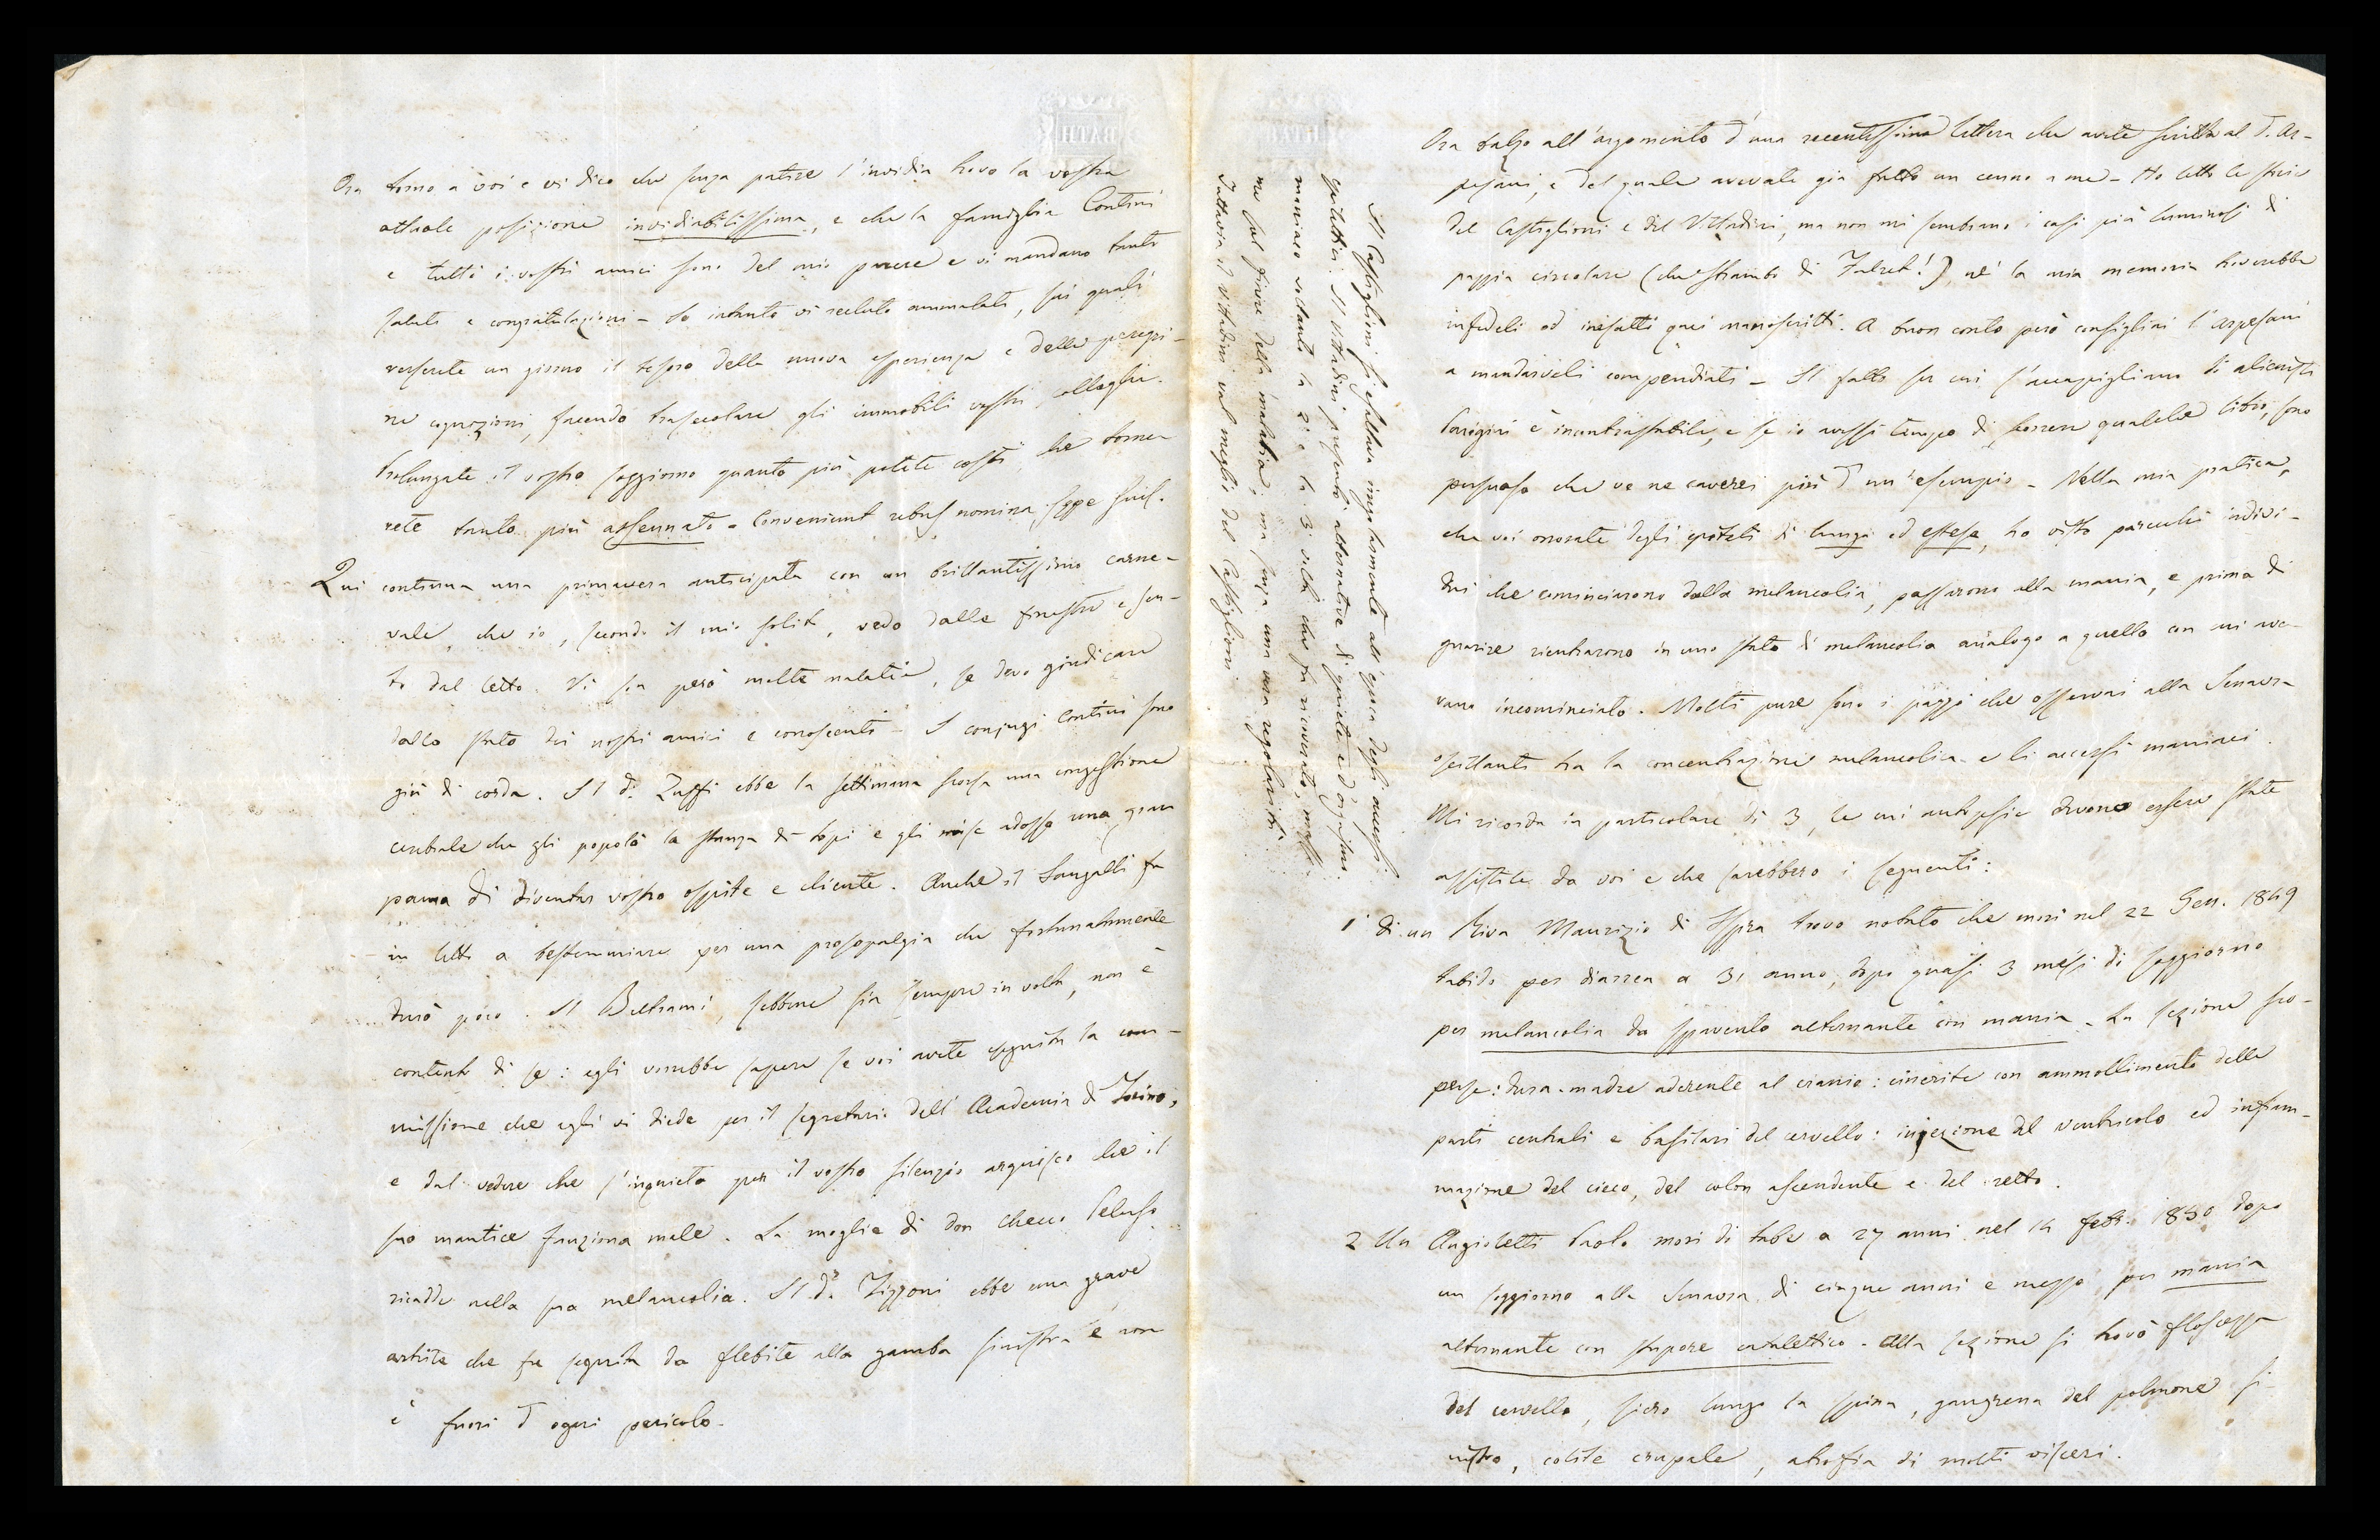 BATH
Ora torno a voi e vi dico che senza patire l'invidia trovo la vostra
attuale posizione invidiabilissima, e che la famiglia Contini
e tutti i vostri amici sono del mio parere e vi mandano tanti
saluti e congratulazioni - Io intanto vi recluto ammalati, sui quali
verserete un giorno il tesoro della nuova esperienza e delle peregri-
ne cognizioni, facendo trasecolare gli immobili vostri colleghi.
Prolungate il vostro soggiorno quanto più potete costì, che torne-
rete tanto più assennato - Conveniunt rebus nomina sepe suis.
Qui continua una primavera anticipata con un brillantissimo carne-
vale, che io, secondo il mio solito, vedo dalle finestre e sen-
to dal letto. Vi son però molte malatie, se devo giudicare
dallo stato dei nostri amici e conoscenti - I conjugi Contini sono
giù di corda. Il d. Zuffi ebbe la settimana scorsa una congestione
cerebrale che gli popolò la stanza di topi e gli mise adosso una gran
paura di diventar vostro ospite e cliente. Anche il Sangalli fu
in letto a bestemmiare per una prosopalgia che fortunatamente
durò poco. Il Beltrami, sebbene sia sempre in volta, non è
contento di se: egli vorrebbe sapere se voi avete eseguita la com-
missione che egli vi diede per il segretario dell'Academia di Torino,
e dal vedere che s'inquieta per il vostro silenzio arguisco che il
suo mantice funziona male. La moglie di don Checco Peluso
ricadde nella sua melancolia. Il d. Tizzoni ebbe una grave
artrite che fu seguita da flebite alla gamba sinistra e non
è fuori d'ogni pericolo.
BATH
Ora balzo all'argomento d'una recentissima lettera che avete scritta al d. Ar-
pesani, e del quale avevate già fatto un cenno a me - Ho letto le storie
del Castiglioni e del Vittadini, ma non mi sembrano i casi più luminosi di
pazzia circolare (che strambo di Falret!), nè la mia memoria troverebbe
infedeli od inesatti quei manoscritti. A buon conto però consigliai l'Arpesani
a mandarveli compendiati - Il fatto per cui s'accapigliano gli alienisti
Parigini è incontrastabile, e se io avessi tempo di scorrere qualche libro, sono
persuaso che ve ne caverei più d'un esempio - Nella mia pratica,
che voi onorate degli epiteti di lunga ed estesa, ho visto parecchi indivi-
dui che cominciarono dalla melancolia, passarono alla mania, e prima di
guarire rientrarono in uno stato di melancolia analogo a quello con cui ave-
vano incominciato. Molti pure sono i pazzi che osservai alla Senavra
oscillanti tra la concentrazione melancolica e li accessi maniaci.
Mi ricordo in particolare di 3, le cui autopsie devono essere state
assistite da voi e che sarebbero i seguenti:
1° di un Riva Maurizio di Ispra trovo notato che morì nel 22 Gen. 1849
tabido per diarrea a 31 anno, dopo quasi 3 mesi di soggiorno
per melancolia da spavento alternante con mania - La sezione sco-
perse: dura-madre aderente al cranio: cinerite con ammollimento delle
parti centrali e basilari del cervello: injezione del ventricolo ed infiam-
mazione del cieco, del colon ascendente e del retto.
2 Un Angioletti Paolo morì di tabe a 27 anni nel 14 febr. 1850 dopo
un soggiorno alla Senavra di cinque anni e mezzo per mania
alternante con stupore catalettico - Alla sezione si trovò floscezza
del cervello, siero lungo la spina, gangrena del polmone si-
nistro, colite crupale, atrofia di molti visceri.
Il Castiglioni si esaltava irregolarmente all'epoca degli accessi
epilettici. Il Vittadini presentò alternative di quiete e d'orgasmo
maniaco soltanto la 2ª e la 3ª volta che fu ricoverato, massi-
me sul finire della malatia; ma senza una vera regolarità
Tuttavia il Vittadini val meglio del Castiglioni